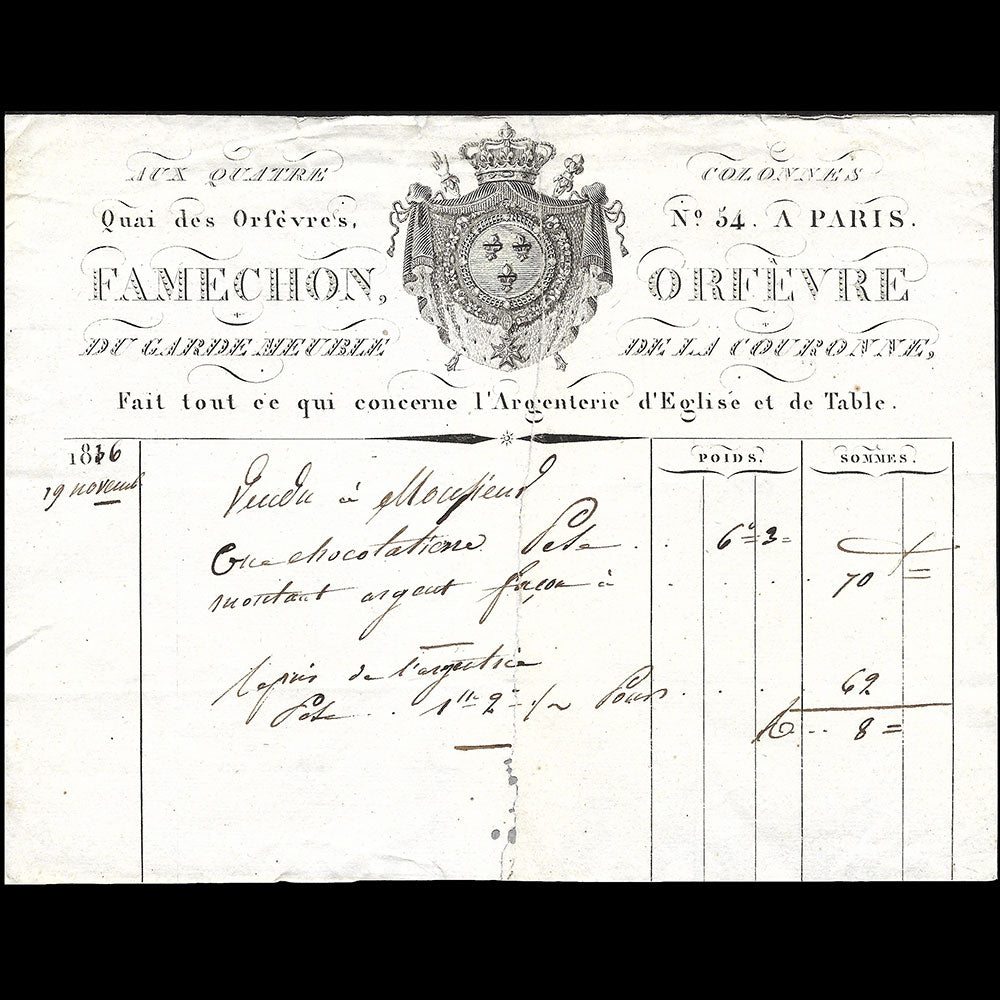 AUX QUATRE COLONNES
Quai des Orfèvres, Nº 54. A PARIS.
FAMECHON, ORFÈVRE
DU GARDE MEUBLE DE LA COURONNE,
Fait tout ce qui concerne l'Argenterie d'Eglise et de Table.
1816 POIDS. SOMMES.
19 novemb
Vendu à Monsieur
Une chocolatiere Pese .. 6º = 3 =
montant argent façon à . . . . 70 =
Repris de l'argentrie 62
Pese .. 1 2 Pour . . .
8 =